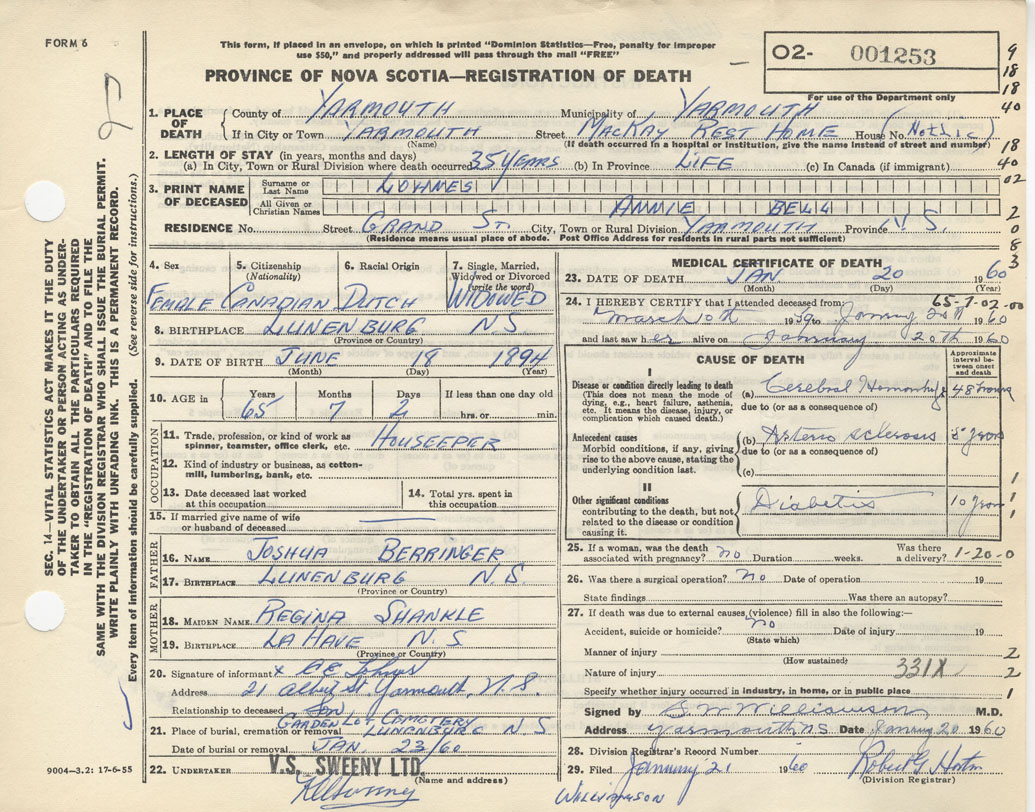 FORM 6
This form, if placed in an envelope, on which is printed "Dominion Statistics—Free, penalty for improper
use $50," and properly addressed will pass through the mail "FREE"
PROVINCE OF NOVA SCOTIA—REGISTRATION OF DEATH
02- 001253
For use of the Department only
9
18
18
40
18
40
02
2
0
8
3
1. PLACE OF DEATH
County of YARMOUTH Municipality of YARMOUTH
If in City or Town YARMOUTH Street MACKAY REST HOME House No.
(Name) (If death occurred in a hospital or institution, give the name instead of street and number)
2. LENGTH OF STAY (in years, months and days)
(a) In City, Town or Rural Division where death occurred 35 YEARS (b) In Province LIFE (c) In Canada (if immigrant)
3. PRINT NAME OF DECEASED
Surname or Last Name LOHNES
All Given or Christian Names ANNIE BELL
RESIDENCE No. Street GRAND ST. City, Town or Rural Division YARMOUTH Province N.S.
(Residence means usual place of abode. Post Office Address for residents in rural parts not sufficient)
4. Sex 5. Citizenship (Nationality) 6. Racial Origin 7. Single, Married, Widowed or Divorced (write the word)
FEMALE CANADIAN DUTCH WIDOWED
8. BIRTHPLACE LUNENBURG N S
(Province or Country)
9. DATE OF BIRTH JUNE 18 1894
(Month) (Day) (Year)
10. AGE in Years Months Days If less than one day old
65 7 2 hrs. or min.
OCCUPATION
11. Trade, profession, or kind of work as HOUSEEPER
spinner, teamster, office clerk, etc.
12. Kind of industry or business, as cotton-
mill, lumbering, bank, etc.
13. Date deceased last worked at this occupation
14. Total yrs. spent in this occupation
15. If married give name of wife
or husband of deceased
FATHER
16. NAME JOSHUA BERRINGER
17. BIRTHPLACE LUNENBURG N.S.
(Province or Country)
MOTHER
18. MAIDEN NAME REGINA SHANKLE
19. BIRTHPLACE LA HAVE N.S
(Province or Country)
20. Signature of informant x
Address 21 Albert St. Yarmouth, N.S.
Relationship to deceased Son
GARDEN LOT CEMETERY
21. Place of burial, cremation or removal LUNENBURG N S
Date of burial or removal JAN. 23/60
22. UNDERTAKER V.S. SWEENY LTD.
(Name and address)
MEDICAL CERTIFICATE OF DEATH
23. DATE OF DEATH JAN 20 1960
(Month) (Day) (Year)
24. I HEREBY CERTIFY that I attended deceased from: 65-7-02-00
March 10th 1959 to January 20th 1960
and last saw her alive on January 20th 1960
CAUSE OF DEATH
Approximate interval between onset and death
I
Disease or condition directly leading to death (a) Cerebral Hemorrhage 48 hours
(This does not mean the mode of
dying, e.g., heart failure, asthenia, due to (or as a consequence of)
etc. It means the disease, injury, or
complication which caused death.)
Antecedent causes (b) Arterio sclerosis years
Morbid conditions, if any, giving due to (or as a consequence of)
rise to the above cause, stating the
underlying condition last. (c)
1
II
Other significant conditions Diabetis 10 years
1
contributing to the death, but not
related to the disease or condition
causing it.
1
25. If a woman, was the death Was there
associated with pregnancy? no Duration weeks. a delivery? 1-20-0
26. Was there a surgical operation? no Date of operation 19
State findings Was there an autopsy?
27. If death was due to external causes (violence) fill in also the following:—
Accident, suicide or homicide? no Date of injury 19
(State which)
Manner of injury 2
(How sustained)
Nature of injury 331X 2
Specify whether injury occurred in industry, in home, or in public place 1
Signed by G.W. Williamson M.D.
Address Yarmouth NS Date January 20 1960
28. Division Registrar's Record Number
29. Filed January 21 1960 Robert G. Horton
(Division Registrar)
WILLIAMSON
SEC. 14—VITAL STATISTICS ACT MAKES IT THE DUTY
OF THE UNDERTAKER OR PERSON ACTING AS UNDER-
TAKER TO OBTAIN ALL THE PARTICULARS REQUIRED
IN THE "REGISTRATION OF DEATH" AND TO FILE THE
SAME WITH THE DIVISION REGISTRAR WHO SHALL ISSUE THE BURIAL PERMIT.
WRITE PLAINLY WITH UNFADING INK. THIS IS A PERMANENT RECORD.
Every item of information should be carefully supplied. (See reverse side for instructions.)
9004-3.2: 17-6-55